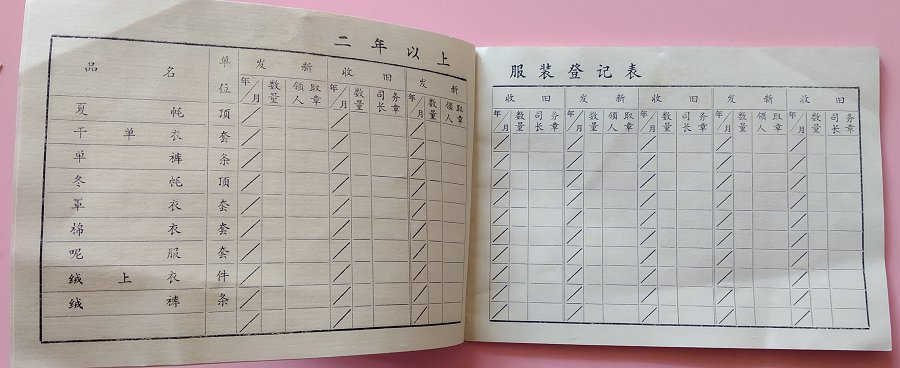 二年以上
品名 单位 发新 收旧 发新
年/月 数量 领取人章 年/月 数量 司务长章 年/月 数量 领取人章
夏帐 顶
干单衣 套
单裤 条
冬帐 顶
罩衣 套
棉衣 套
呢服 套
绒上衣 件
绒裤 条
服装登记表
收旧 发新 收旧 发新 收旧
年/月 数量 司务长章 年/月 数量 领取人章 年/月 数量 司务长章 年/月 数量 领取人章 年/月 数量 司务长章